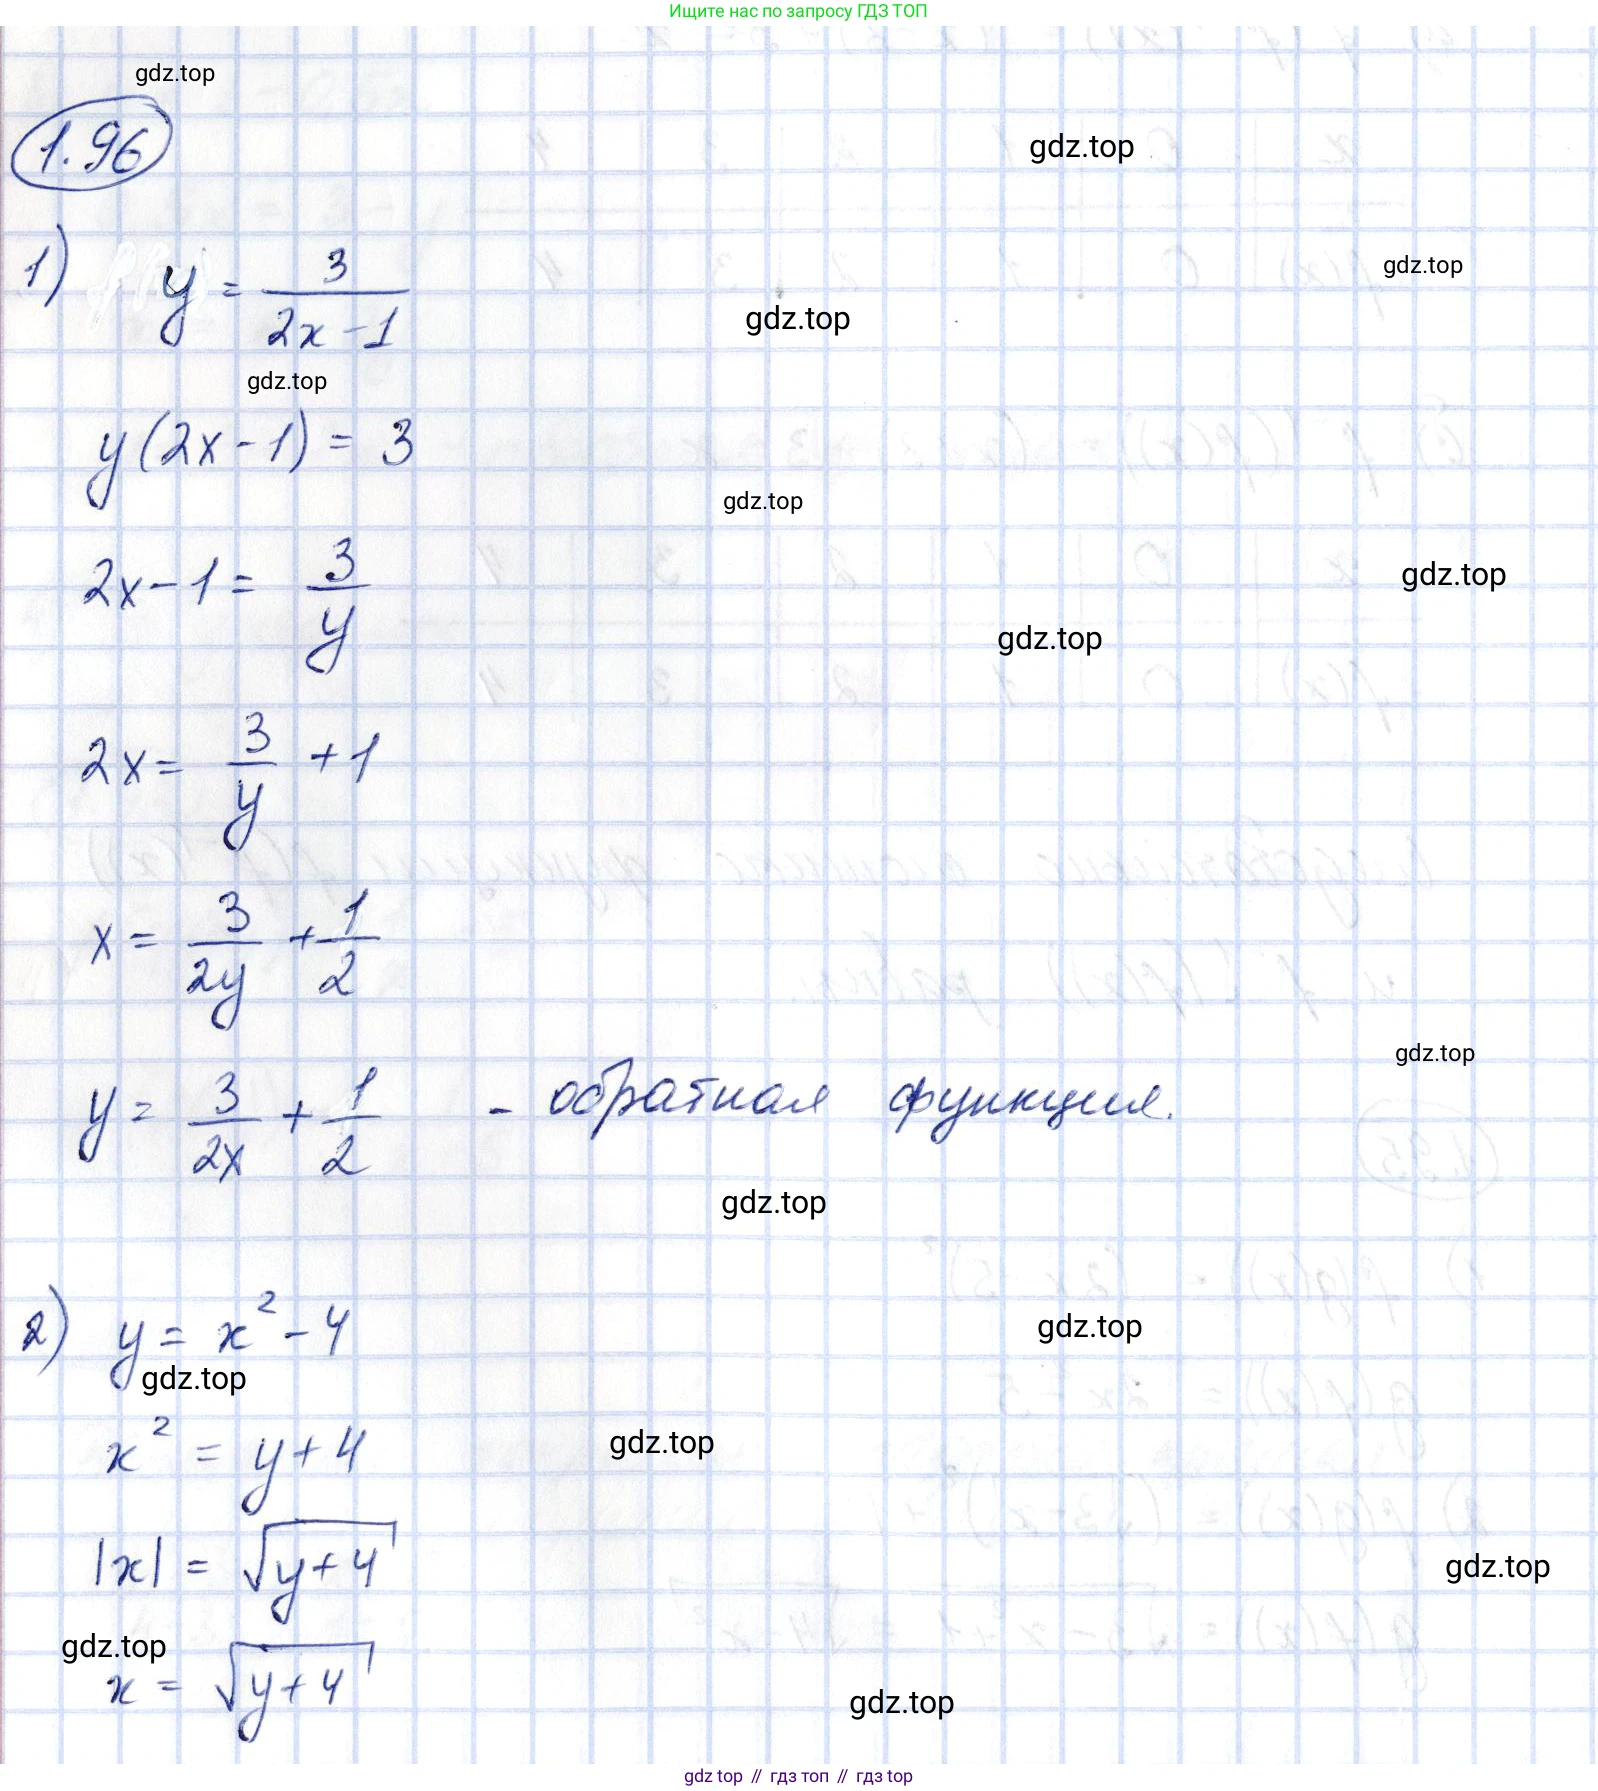 Ищите нас по запросу ГДЗ ТОП
gdz.top
1.96
gdz.top
1) y = 3/(2x-1)
gdz.top
gdz.top
gdz.top
y(2x-1) = 3
gdz.top
2x-1 = 3/y
gdz.top
gdz.top
2x = 3/y + 1
x = 3/2y + 1/2
gdz.top
y = 3/2x + 1/2 - обратная функция.
gdz.top
2) y = x² - 4
gdz.top
gdz.top
x² = y+4
gdz.top
|x| = √(y+4)
gdz.top
gdz.top
x = √(y+4)
gdz.top
gdz top // гдз топ // гдз.top